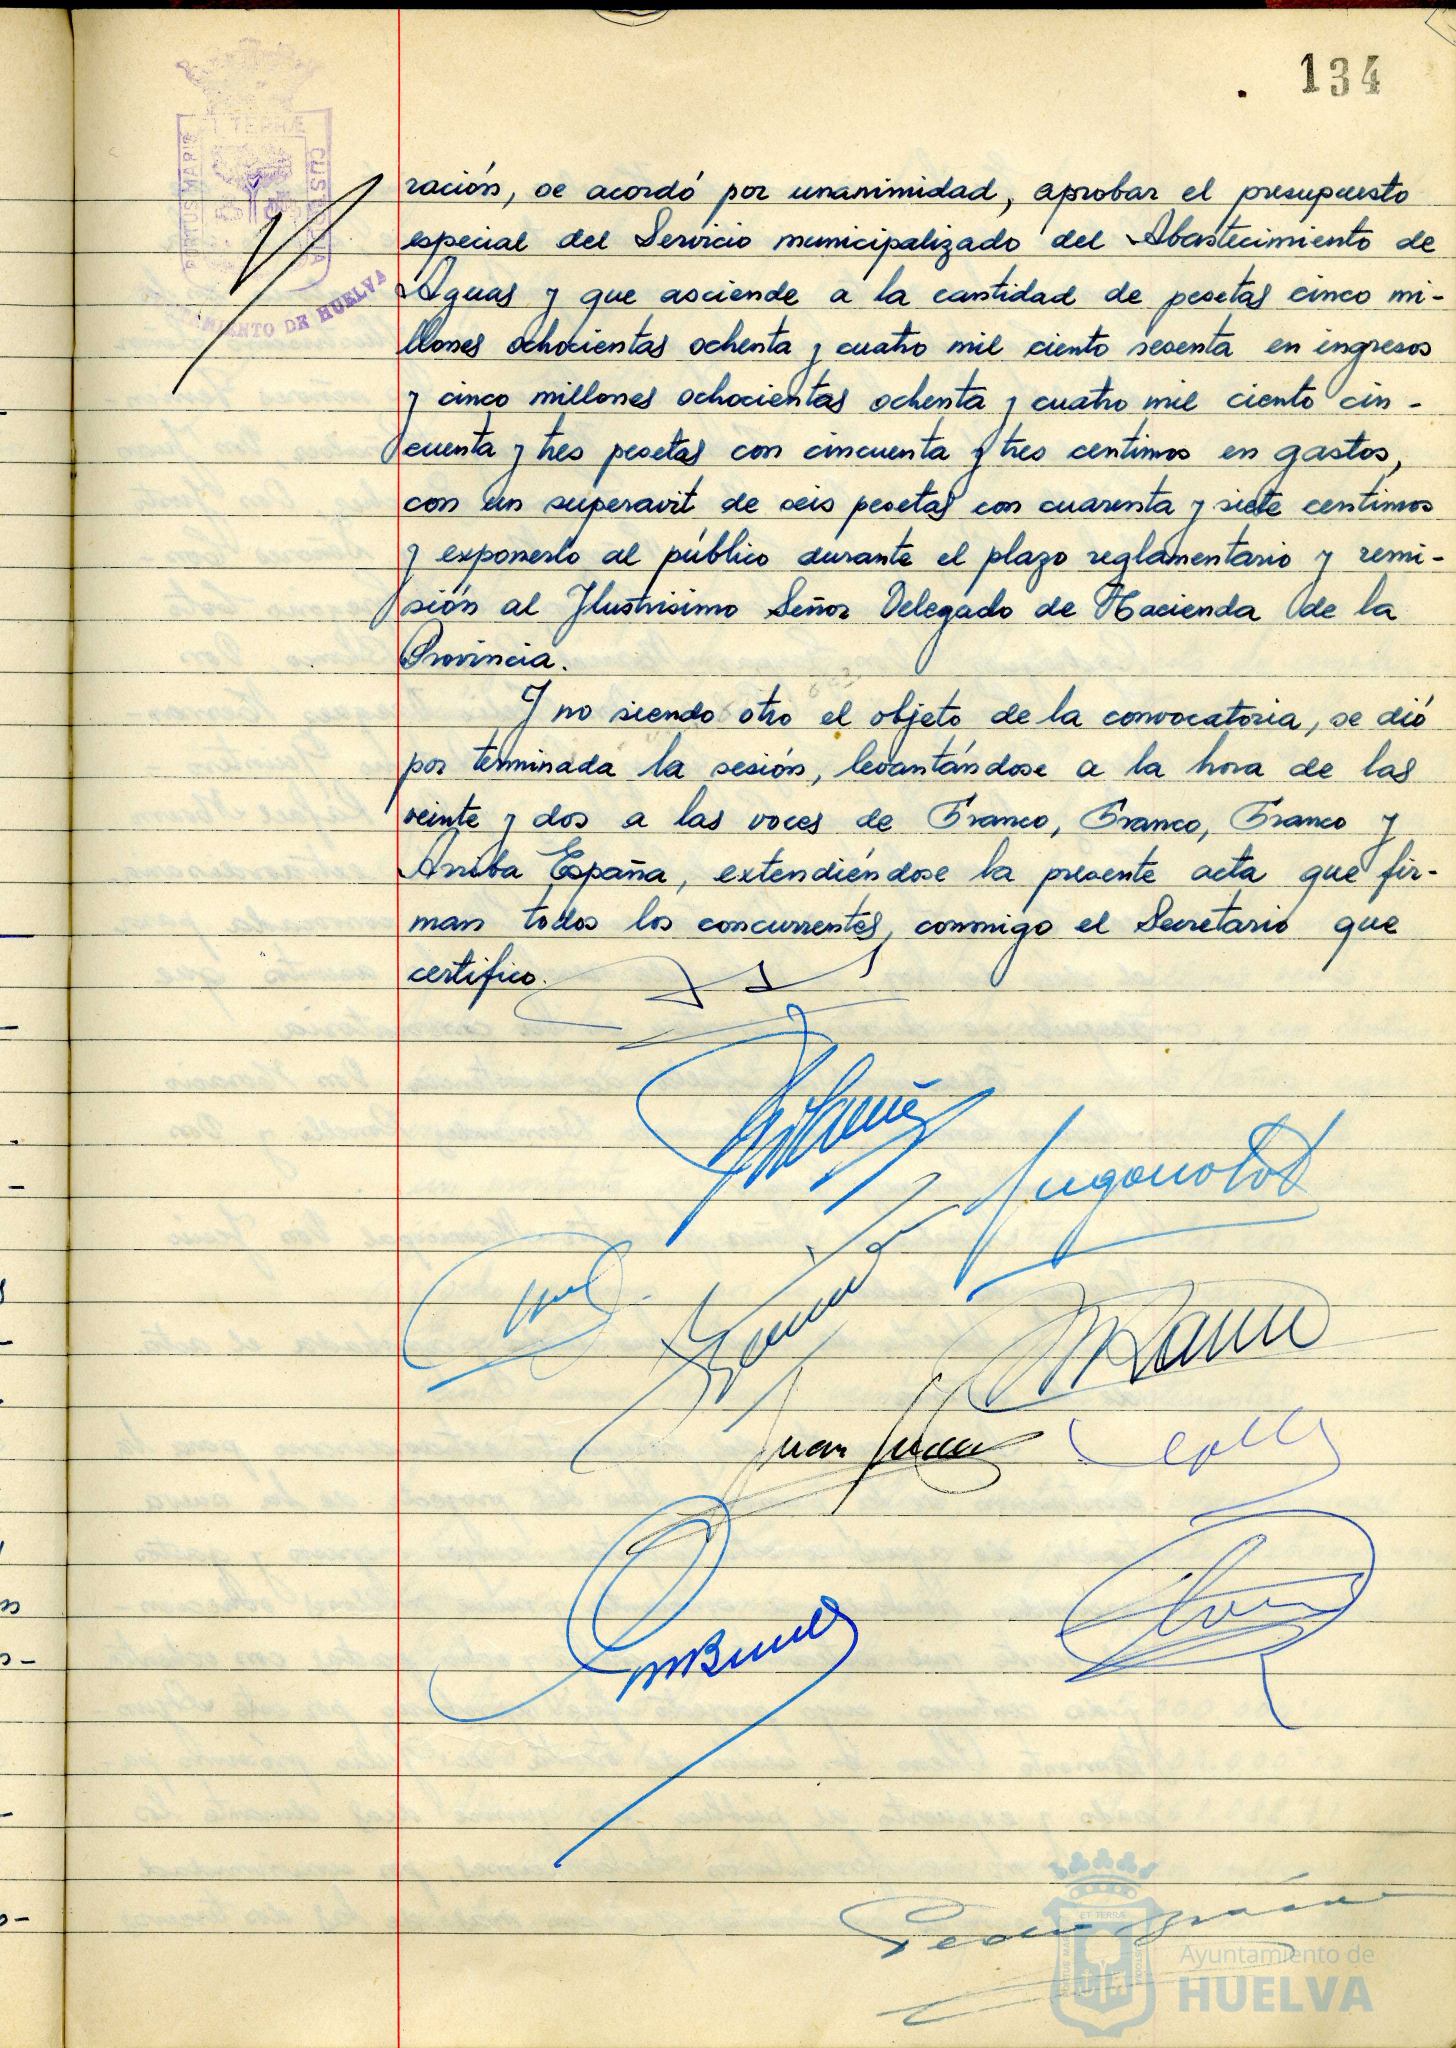 134
PORTUS MARIS ET TERRÆ CUSTODIA
AYUNTAMIENTO DE HUELVA
ración, se acordó por unanimidad, aprobar el presupuesto
especial del Servicio municipalizado del Abastecimiento de
Aguas y que asciende a la cantidad de pesetas cinco mi-
llones ochocientas ochenta y cuatro mil ciento sesenta en ingresos
y cinco millones ochocientas ochenta y cuatro mil ciento cin-
cuenta y tres pesetas con cincuenta y tres centimos en gastos,
con un superavit de seis pesetas con cuarenta y siete centimos
y exponerlo al público durante el plazo reglamentario y remi-
sión al Ilustrisimo Señor Delegado de Hacienda de la
Provincia.
Y no siendo otro el objeto de la convocatoria, se dió
por terminada la sesión, levantándose a la hora de las
veinte y dos a las voces de Franco, Franco, Franco y
Arriba España, extendiéndose la presente acta que fir-
man todos los concurrentes, conmigo el Secretario que
certifico.
Juan
Pedro
Ayuntamiento de
HUELVA